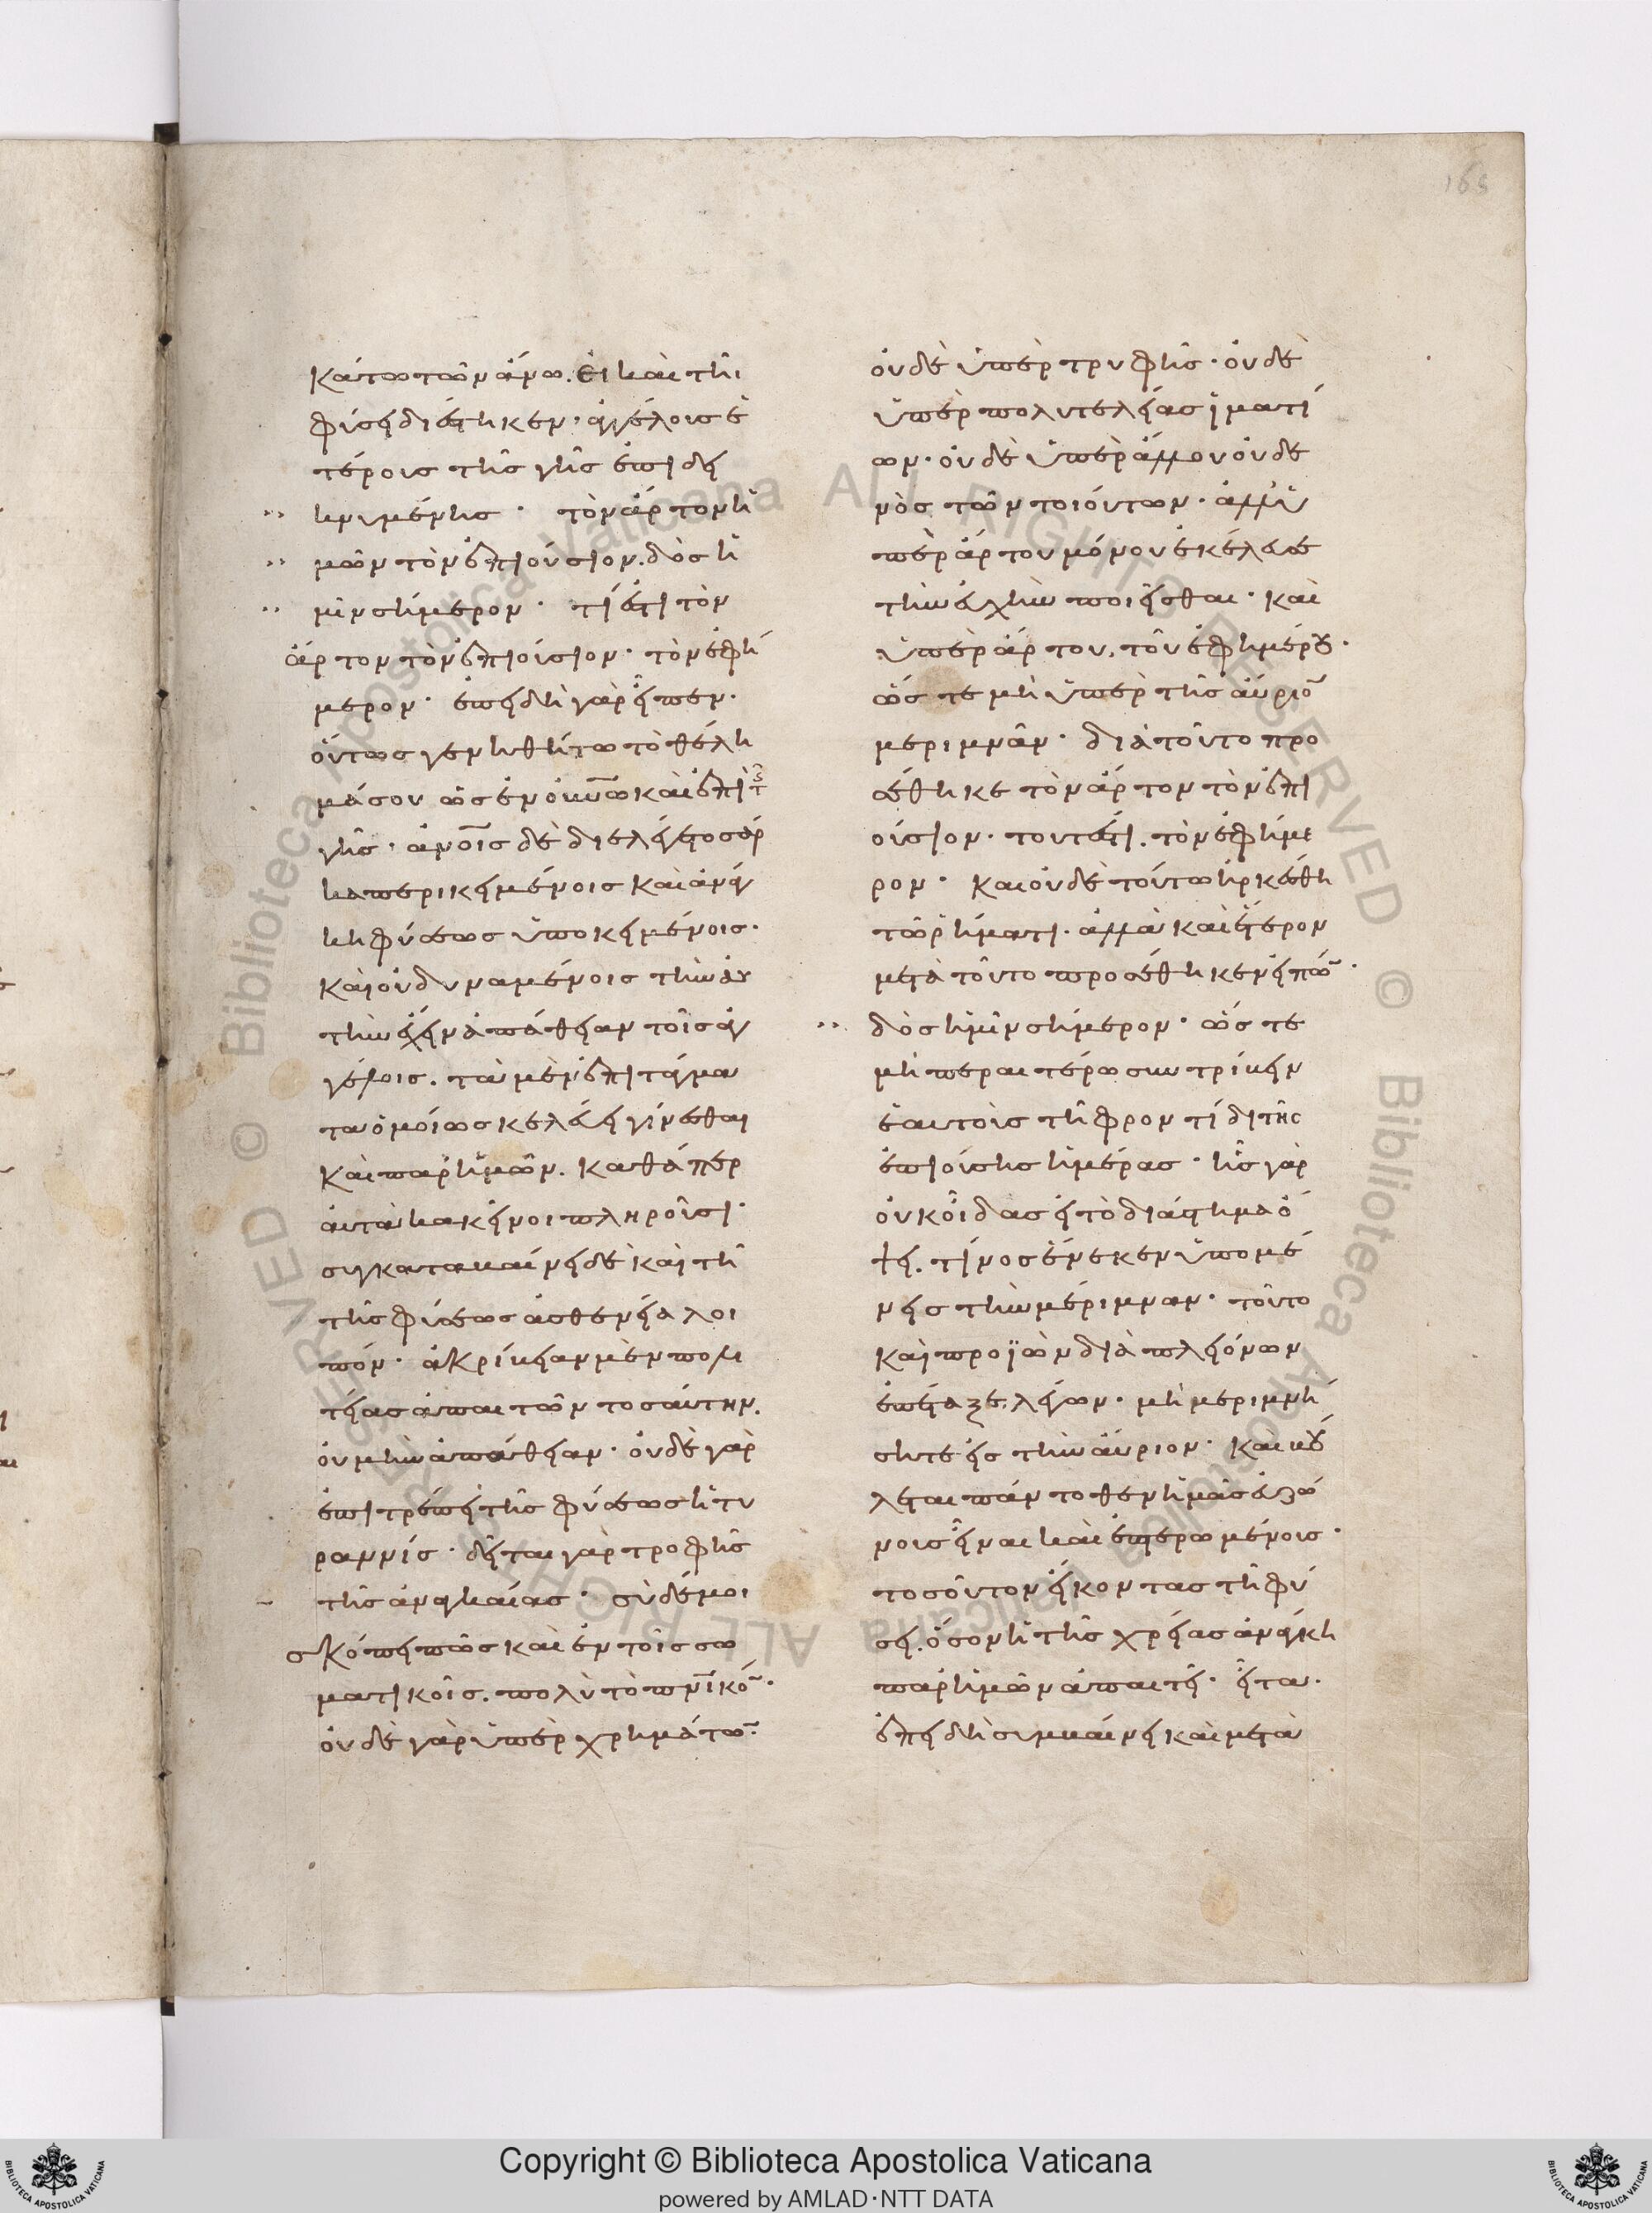 κάτω τῶν ἄνω. εἰ καὶ τῆι
φύσει διέστηκεν· ἀγγέλοις ἑ
τέροις τῆς γῆς ἐπιδει
κνυμένης· τὸν ἄρτον ἡ
μῶν τὸν ἐπιούσιον. δὸς ἡ
μῖν σήμερον· τί ἐστι τὸν
ἄρτον τὸν ἐπιούσιον· τὸν ἐφή
μερον· ἐπειδὴ γὰρ εἶπεν·
οὕτως γενηθήτω τὸ θέλη
μά σου ὡς ἐν οὐνῶ καὶ ἐπὶ τῆς
γῆς· ἀνοις δὲ διελέγετο σάρ
κα περικειμένοις καὶ ἀνάγ
κη φύσεως ὑποκειμένοις·
καὶ οὐ δυναμένοις τὴν αὐ
τὴν ἔχειν ἀπάθειαν τοῖς ἀγ
γέλοις. τὰ μὲν ἐπιτάγμα
τα ὁμοίως κελεύει γίνεσθαι
καὶ παρ' ἡμῶν. καθάπερ
αὐτὰ κἀκεῖνοι πληροῦσι·
συγκαταβαίνει δὲ καὶ τῆ
τῆς φύσεως ἀσθενεία λοι
πόν· ἀκρίβειαν μὲν πολι
τείας ἀπαιτῶν τοσαύτην.
οὐ μὴν ἀπάθειαν· οὐδὲ γὰρ
ἐπιτρέπει τῆς φύσεως ἡ τυ
ραννίς· δεῖται γὰρ τροφῆς
τῆς ἀναγκαίας· σὺ δέ μοι
σκόπει πῶς καὶ ἐν τοῖς σω
ματικοῖς. πολὺ τὸ πνικόν·
οὐδὲ γὰρ ὑπὲρ χρημάτων·
οὐδὲ ὑπὲρ τρυφῆς· οὐδὲ
ὑπὲρ πολυτελείας ἱματί
ων· οὐδὲ ὑπὲρ ἄλλου οὐδε
νὸς τῶν τοιούτων· ἀλλ' ὑ
πὲρ ἄρτου μόνον ἐκέλευσε
τὴν εὐχὴν ποιεῖσθαι· καὶ
ὑπὲρ ἄρτου, τοῦ ἐφημέρου·
ὥστε μὴ ὑπὲρ τῆς αὔριον
μεριμνᾶν· διὰ τοῦτο προ
σέθηκε τὸν ἄρτον τὸν ἐπι
ούσιον· τουτέστι. τὸν ἐφήμε
ρον· καὶ οὐδὲ τούτω ἠρκέσθη
τῶ ῥήματι. ἀλλὰ καὶ ἕτερον
μετὰ τοῦτο προσέθηκεν εἰπών·
δὸς ἡμῖν σήμερον· ὥστε
μὴ περαιτέρω συντρίβειν
ἑαυτοὺς τῆ φροντίδι τῆς
ἐπιούσης ἡμέρας· ἧς γὰρ
οὐκ οἶδας εἰ τὸ διάστημα ὄ
ψει. τίνος ἕνεκεν ὑπομέ
νεις τὴν μέριμναν· τοῦτο
καὶ προϊὼν διὰ πλειόνων
ἐπέταξε. λέγων· μὴ μεριμνή
σητε εἰς τὴν αὔριον· καὶ βού
λεται πάντοθεν ἡμᾶς εὐζώ
νους εἶναι καὶ ἐπτερωμένους·
τοσοῦτον εἴκοντας τῆ φύ
σει. ὅσον ἡ τῆς χρείας ἀνάγκη
παρ' ἡμῶν ἀπαιτεῖ· εἶτα·
ἐπειδὴ συμβαίνει καὶ μετὰ
Copyright © Biblioteca Apostolica Vaticana
powered by AMLAD·NTT DATA